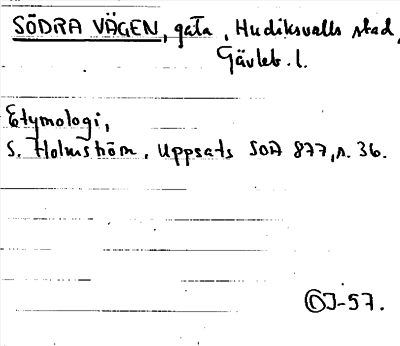 SÖDRA VÄGEN, gata, Hudiksvalls stad,
Gävleb. l.
Etymologi,
S. Holmström, Uppsats SOA 877, s. 36.
OJ-57.